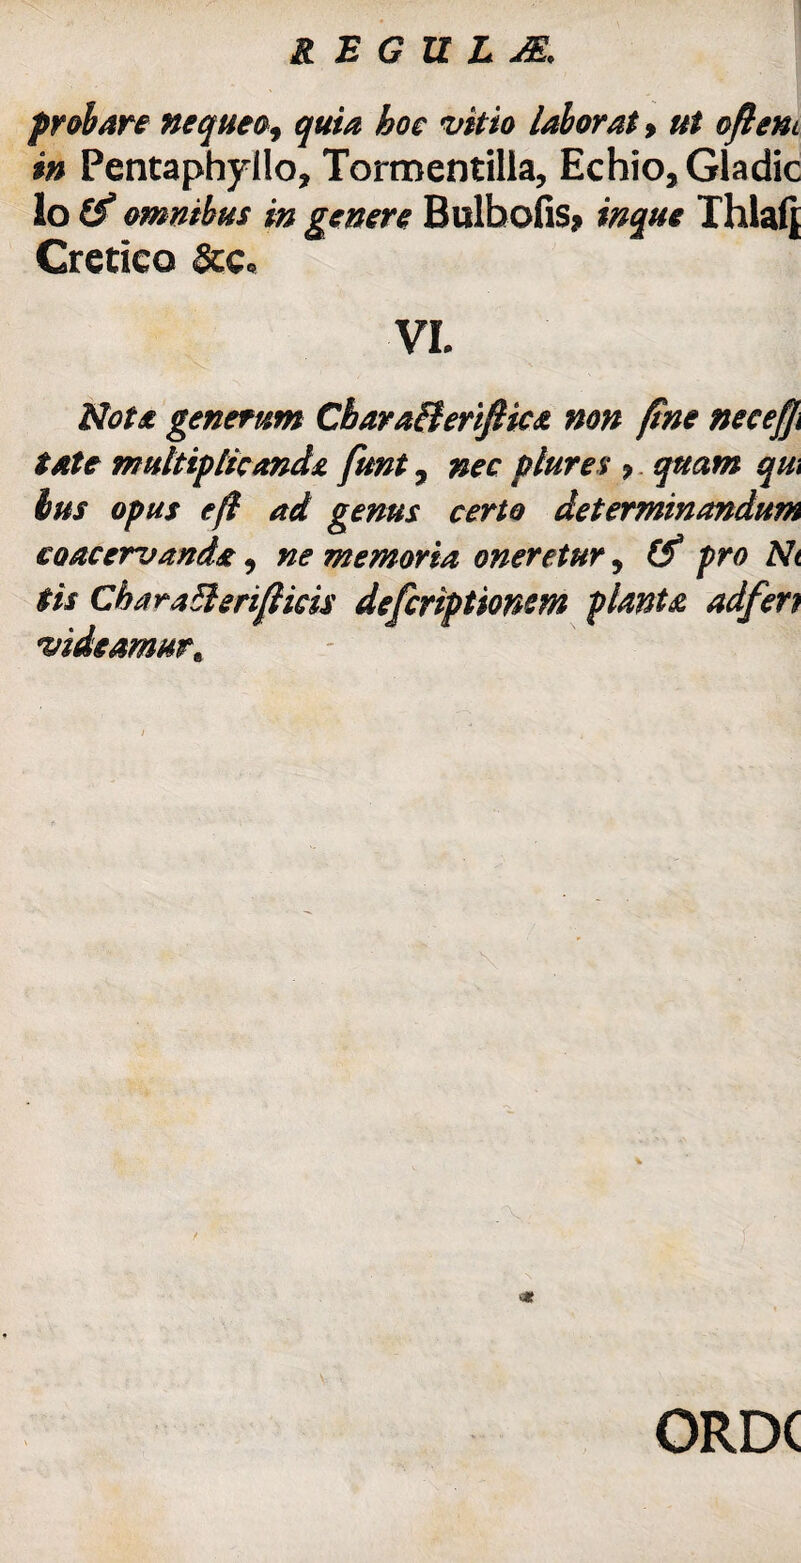 REGULÆ.
probare nequeo, quia hoc vitio laborat, ut ostenſ
in Pentaphyllo, Tormentilla, Echio, Gladio
lo & omnibus in genere Bulboſis, inque Thlaſp
Cretico &c.
VI.
Notæ generum Characteriſticæ non ſine neceſſi
tate multiplicandæ ſunt, nec plures, quam qui
bus opus eſt ad genus certo determinandum
coacervandæ, ne memoria oneretur, & pro No
tis Characteriſticis deſcriptionem plantæ adferr
videamur.
ORDO